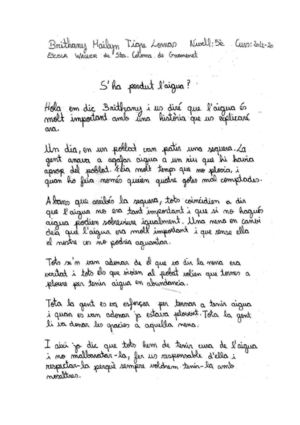 Brithany Mailyn Tigre Lomas Nivell: 5è Curs: 2019-20
Escola Wagner de Sta. Coloma de Gramenet
S'ha perdut l'aigua?
Hola em dic Brithany i us diré que l'aigua és
molt important amb una història que us explicaré
ara.
Un dia, en un poblat van patir una sequera. La
gent anava a agafar aigua a un riu que hi havia
aprop del poblat. Feia molt temps que no plovia, i
quan ho feia només queien quatre gotes mal comptades.
Abans que acabés la sequera, tots coincidien a dir
que l'aigua no era tant important i que si no hagués
aigua podien sobreviure igualment. Una nena en canvi
deia que l'aigua era molt important i que sense ella
el nostre cos no podria aguantar.
Tots si'n van adonar de el que va dir la nena era
veritat i tots els que vivien al poblat volien que tornés a
ploure per tenir aigua en abundancia.
Tota la gent es va esforçar per tornar a tenir aigua
i quan es van adonar ja estava plovent. Tota la gent
li va donar les gracies a aquella nena.
I aixi ja dic que tots hem de tenir cura de l'aigua
i no malbaratar-la, fer us responsable d'ella i
respectar-la perquè sempre voldrem tenir-la amb
nosaltres.